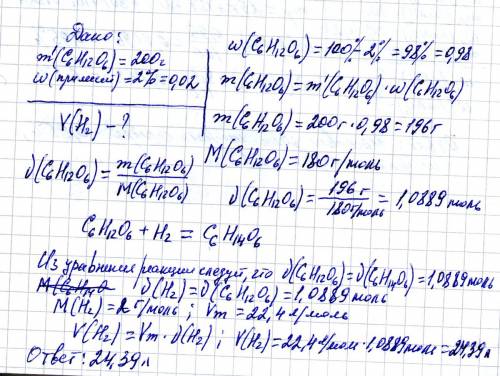 Дано:
m'(C₆H₁₂O₆)=200г
w(примесей)=2%=0,02
V(H₂) - ?
w(C₆H₁₂O₆)=100%-2%=98%=0,98
m(C₆H₁₂O₆)=m'(C₆H₁₂O₆)·w(C₆H₁₂O₆)
m(C₆H₁₂O₆)=200г·0,98=196г
ν(C₆H₁₂O₆)=m(C₆H₁₂O₆)/M(C₆H₁₂O₆)
M(C₆H₁₂O₆)=180г/моль
ν(C₆H₁₂O₆)=196г/180г/моль=1,0889моль
C₆H₁₂O₆+H₂=C₆H₁₄O₆
Из уравнения реакции следует, что ν(C₆H₁₂O₆)=ν(C₆H₁₄O₆)=1,0889моль
ν(H₂)=ν(C₆H₁₂O₆)=1,0889моль
M(H₂)=2г/моль; Vm=22,4л/моль
V(H₂)=Vm·ν(H₂); V(H₂)=22,4л/моль·1,0889моль=24,39л
Ответ: 24,39л